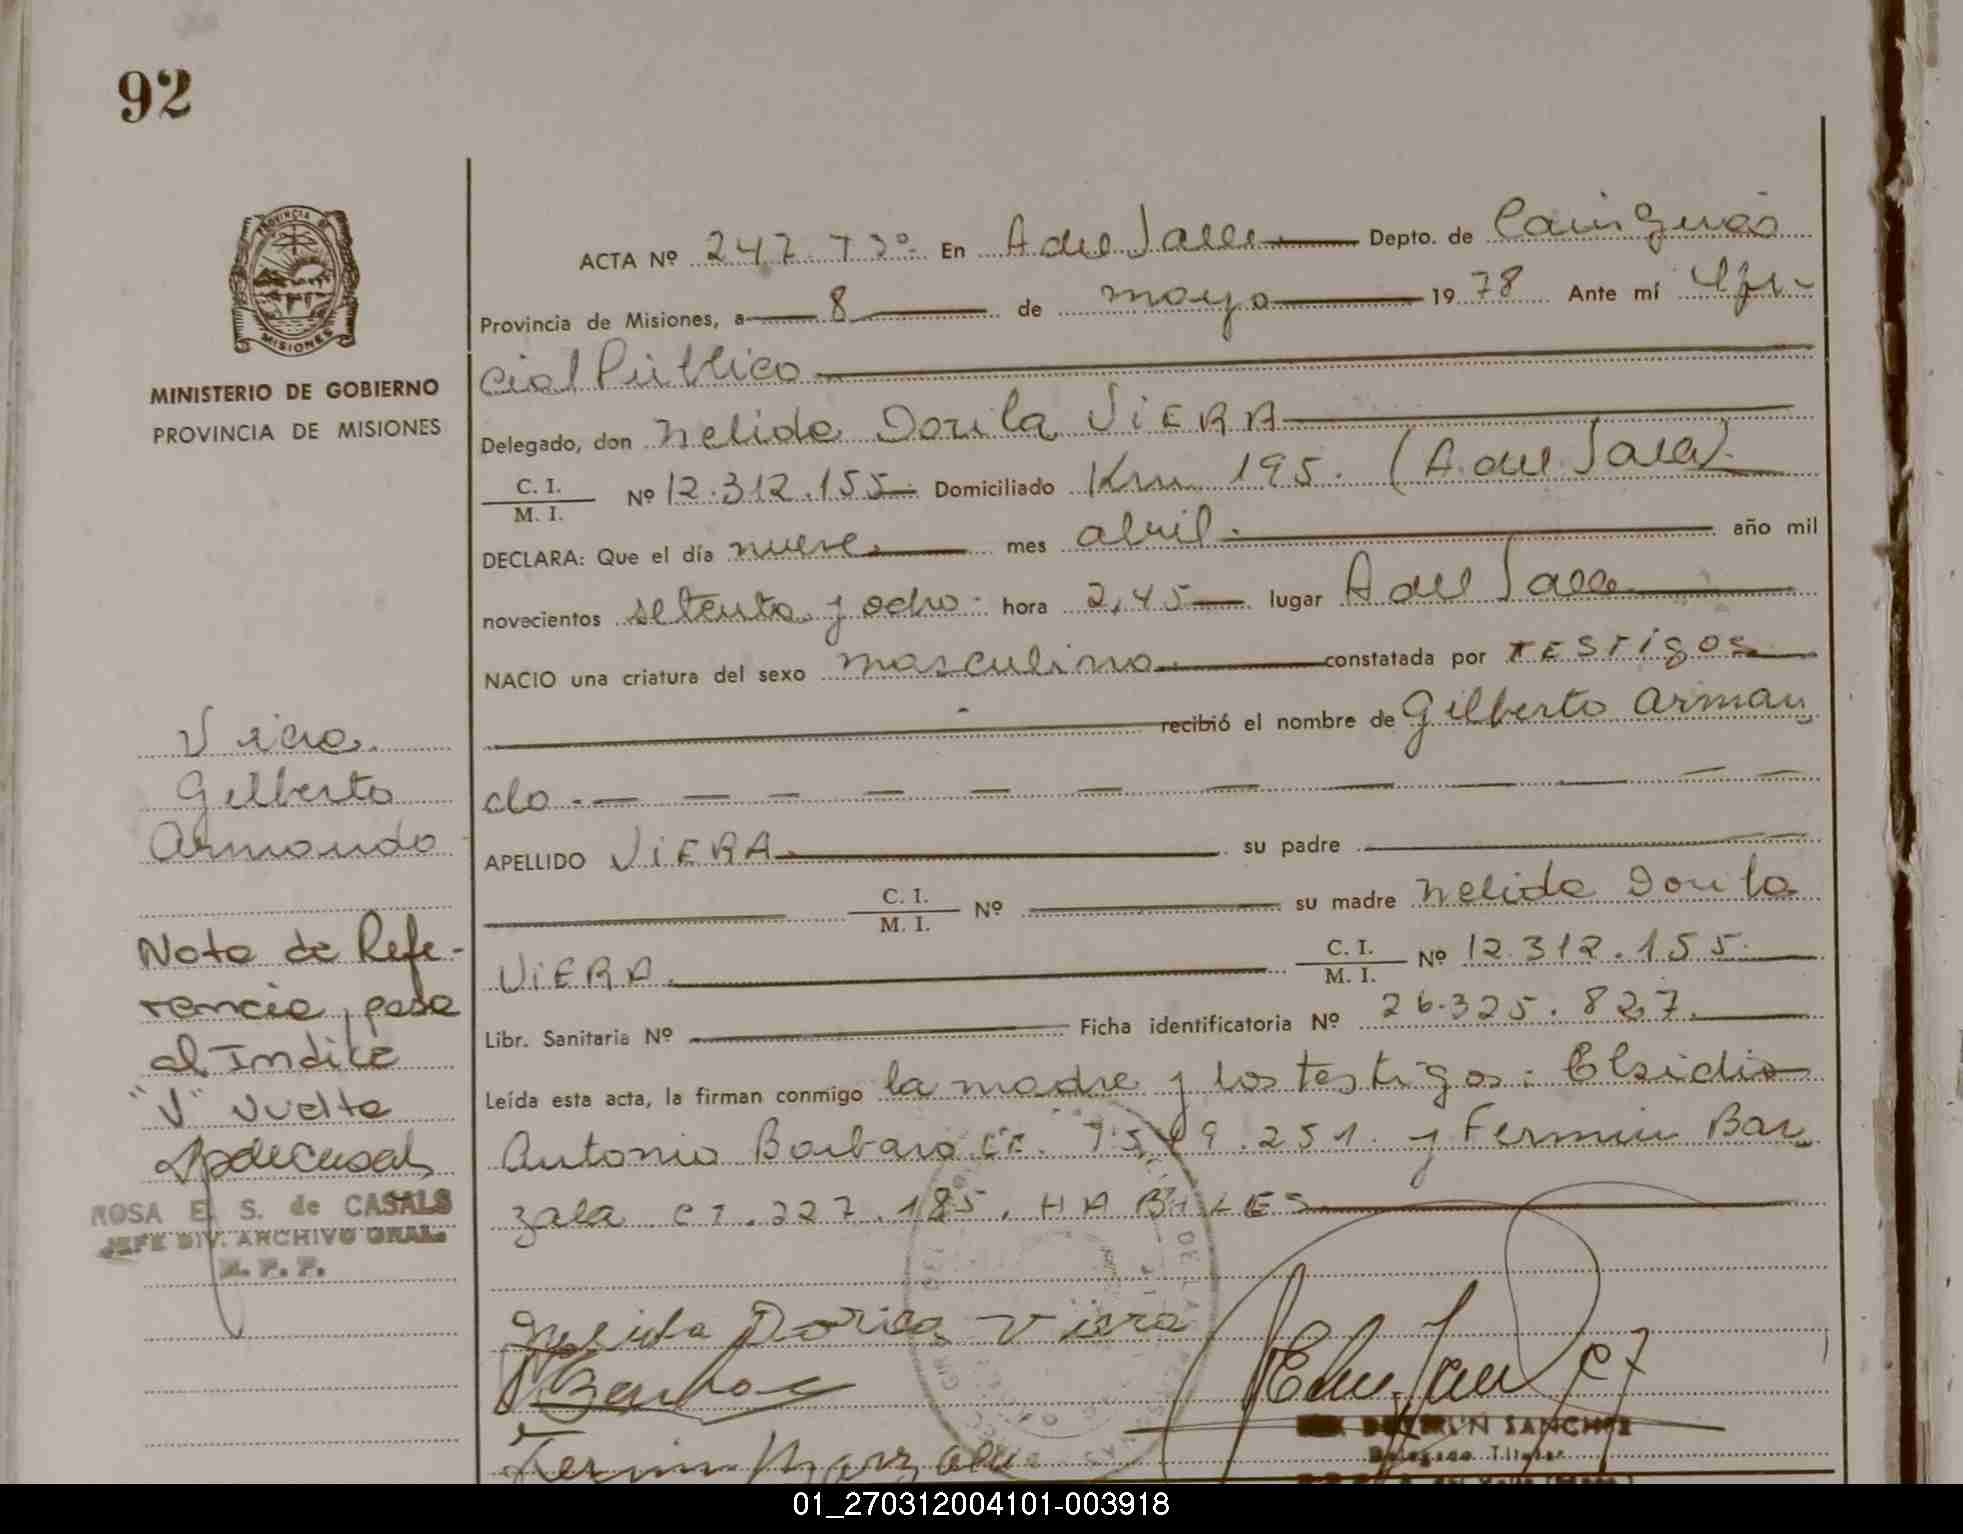 92
PROVINCIA DE
MISIONES
MINISTERIO DE GOBIERNO
PROVINCIA DE MISIONES
ACTA Nº 247 Tº En A del Valle Depto. de Cainguás
Provincia de Misiones, a 8 de mayo 1978 Ante mí Ofi-
cial Público
Delegado, don Nelida Dorila ViERA
C. I. / M. I. Nº 12.312.155 Domiciliado Km 195. (A. del Valle).
DECLARA: Que el día nueve mes abril. año mil
novecientos setenta y ocho. hora 2,45 lugar A del Valle
NACIO una criatura del sexo masculino constatada por TESTigos
recibió el nombre de Gilberto Arman
do.
APELLIDO ViERA su padre
C. I. / M. I. Nº su madre Nelida Dorila
ViERA. C. I. / M. I. Nº 12.312.155.
Libr. Sanitaria Nº Ficha identificatoria Nº 26.325.827.
Leída esta acta, la firman conmigo la madre y los testigos: Elsidio
Antonio Barbaro CI. 7.519.251. y Fermin Bar
zala CI. 227.185. HABILES
Viera.
Gilberto
Armando
Nota de Refe-
rencia, pasa
al Indice
"V" vuelta
ROSA E. S. de CASALS
JEFE DIV. ARCHIVO GRAL.
R. P. P.
Nelida Dorila Viera
Fermin Barzala
SANCHEZ
Delegado Titular
01_270312004101-003918